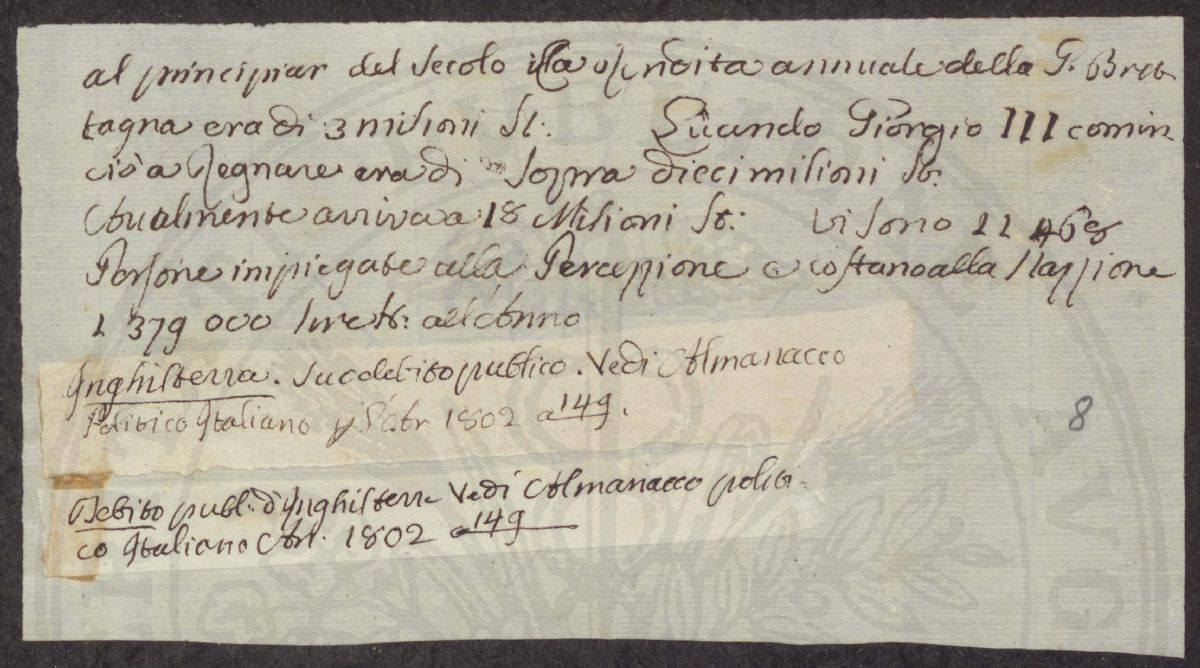 al principiar del secolo la rendita annuale della G. Bret
tagna era di 3 milioni St. Quando Giorgio III comin
ciò a Regnare era di sopra diecimilioni St.
Attualmente arriva a 18 Milioni St: Vi sono
Persone impiegate alla Percezzione e costano alla Nazzione
1 379 000 lire st: all'Anno
Inghilterra. Suo debito publico. Vedi Almanacco
Politico Italiano 1802 a 149.
8
Debito publ: d'Inghilterra Vedi Almanacco politi
co Italiano An. 1802 a 149